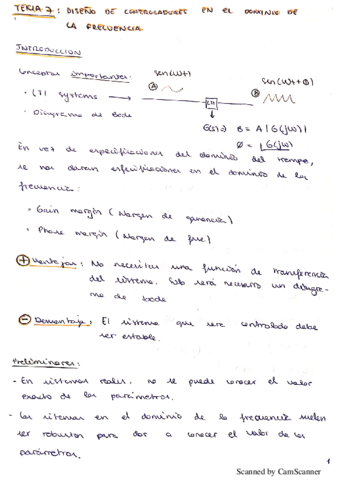 TEMA 7: DISEÑO DE CONTROLADORES EN EL DOMINIO DE
LA FRECUENCIA.
INTRODUCCION
Conceptos importantes:
sen(ωt)
sen(ωt+Φ)
· LTI systems
A
B
· Diagrama de bode
G(s) => B = A |G(jω)|
Φ = ∠G(jω)
En vez de especificaciones del dominio del tiempo,
se nos darán especificaciones en el dominio de la
frecuencia:
· Gain margin (Margen de ganancia)
· Phase margin (Margen de fase)
+ Ventajas: No necesitas una función de transferencia
del sistema. Solo será necesario un diagra-
ma de bode
- Desventaja: El sistema que sera controlado debe
ser estable.
Preliminares:
- En sistemas reales, no se puede conocer el valor
exacto de los parámetros.
- Los sistemas en el dominio de la frecuencia suelen
ser robustos para dar a conocer el valor de los
parámetros.
1
Scanned by CamScanner